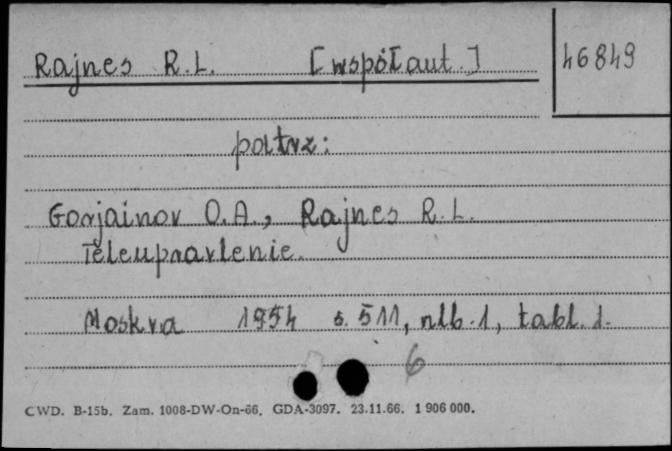 Rajnes R.L. [współaut.] 46849
patrz:
Gorjainov O.A., Rajnes R.L.
Têleupravlenie.
Moskva 1954 s. 511, nlb. 1, tabl. 1.
6
CWD. B-15b. Zam. 1008-DW-On-66. GDA-3097. 23.11.66. 1 906 000.